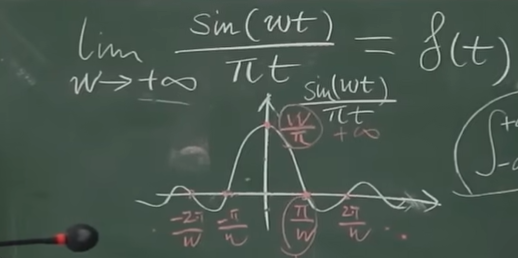 lim w→+∞ sin(wt)/πt = δ(t)
sin(wt)/πt
w/π +∞
∫ +∞ -∞
-2π/w -π/w π/w 2π/w ..